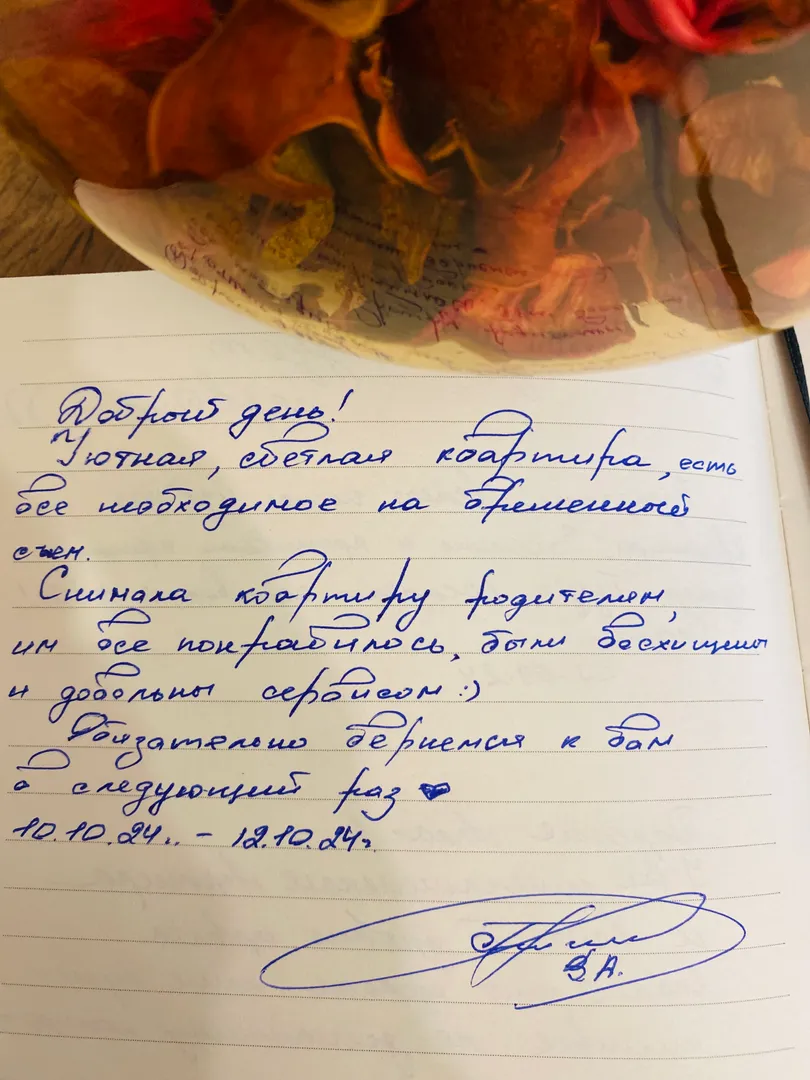 Добрый день!
Уютная, светлая квартира, есть
все необходимое на временный
съем.
Снимала квартиру родителям,
им все понравилось, были восхищены
и довольны сервисом :)
Обязательно вернемся к вам
в следующий раз
10.10.24г. - 12.10.24г.
З.А.